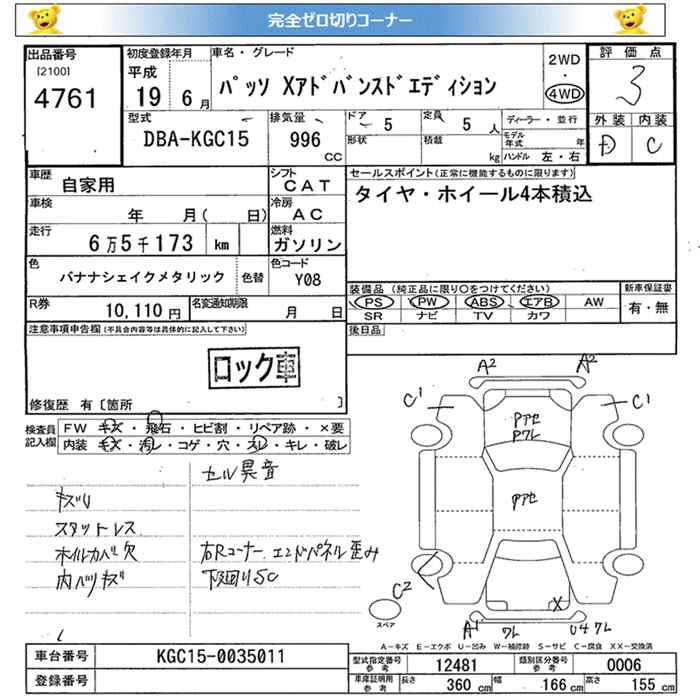 完全ゼロ切りコーナー
出品番号
[2100]
4761
初度登録年月
平成
19 6月
車名・グレード
パッソ Xアドバンスドエディション
2WD
・
4WD
評価点
3
外装 内装
D C
型式
DBA-KGC15
排気量
996
CC
ドア 5
形状
定員 5 人
積載 kg
ディーラー・並行
モデル年式 年
ハンドル 左・右
車歴
自家用
シフト
CAT
車検
年 月( 日)
冷房
AC
走行
6万5千173 km
燃料
ガソリン
色
バナナシェイクメタリック
色替
色コード
Y08
R券
10,110円
名変通知期限
月 日
セールスポイント(正常に機能するものに限ります)
タイヤ・ホイール4本積込
装備品 (純正品に限り○をつけてください)
PS PW ABS エアB AW
SR ナビ TV カワ
新車保証書
有・無
後日品
注意事項申告欄(不具合内容等は具体的に記入して下さい)
ロック車
修復歴 有〔箇所 〕
検査員記入欄
FW キズ・飛石・ヒビ割・リペア跡・×要
内装 キズ・汚レ・コゲ・穴・スレ・キレ・破レ
セル異音
キズU
スタットレス
ホイルカバー欠
内ハツリキズ
右Rコーナー エンドパネル歪み
下廻りSC
A2 A2
C1 C1
Pアセ
Pワレ
Pアセ
C2
スペア
X
A1 ワレ U4ワレ
A-キズ E-エクボ U-凹み W-補修跡 S-サビ C-腐食 XX-交換済
車台番号
KGC15-0035011
登録番号
型式指定番号
参考
12481
類別区分番号
参考
0006
車庫証明用
参考
長さ 360 cm
幅 166 cm
高さ 155 cm